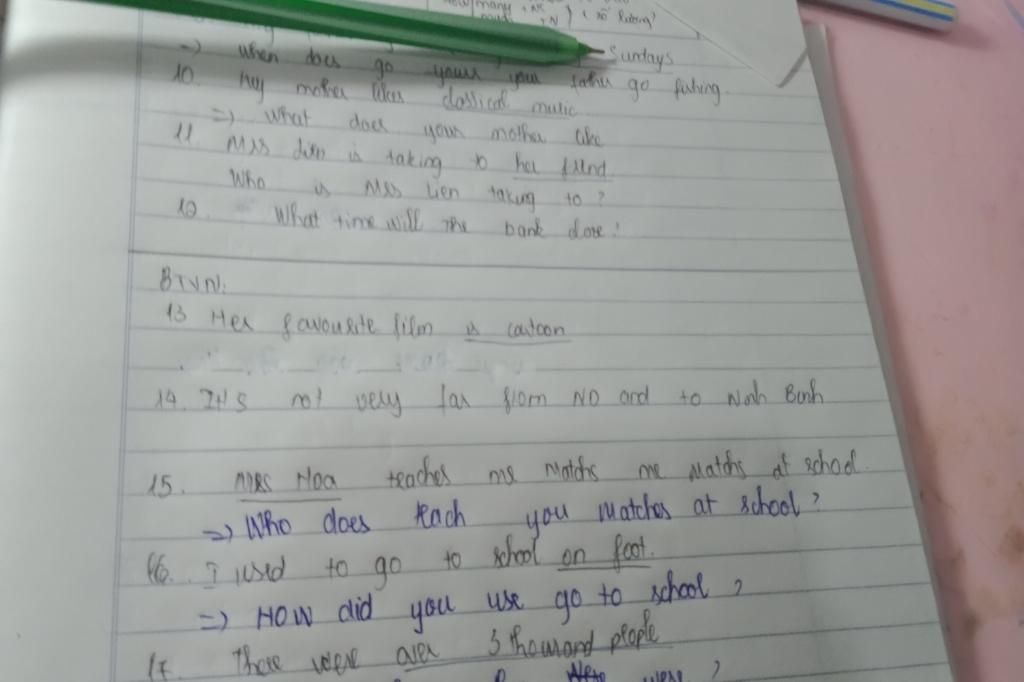 how many
Sundays
=) when does go your your father go fishing.
10. My mother likes classical music
=) What does your mother like
11. Mrs Lien is taking to her friend
Who is Mrs Lien taking to ?
12. What time will the bank close ?
BTVN:
13 Her favourite film is cartoon
14. It's not very far from ND ord to Ninh Binh
15. Mrs Hoa teaches me Maths me Maths at school.
=) Who does teach you Matches at school ?
16. I used to go to school on foot.
=) How did you use go to school ?
17. There were over 3 thousand people
were ?